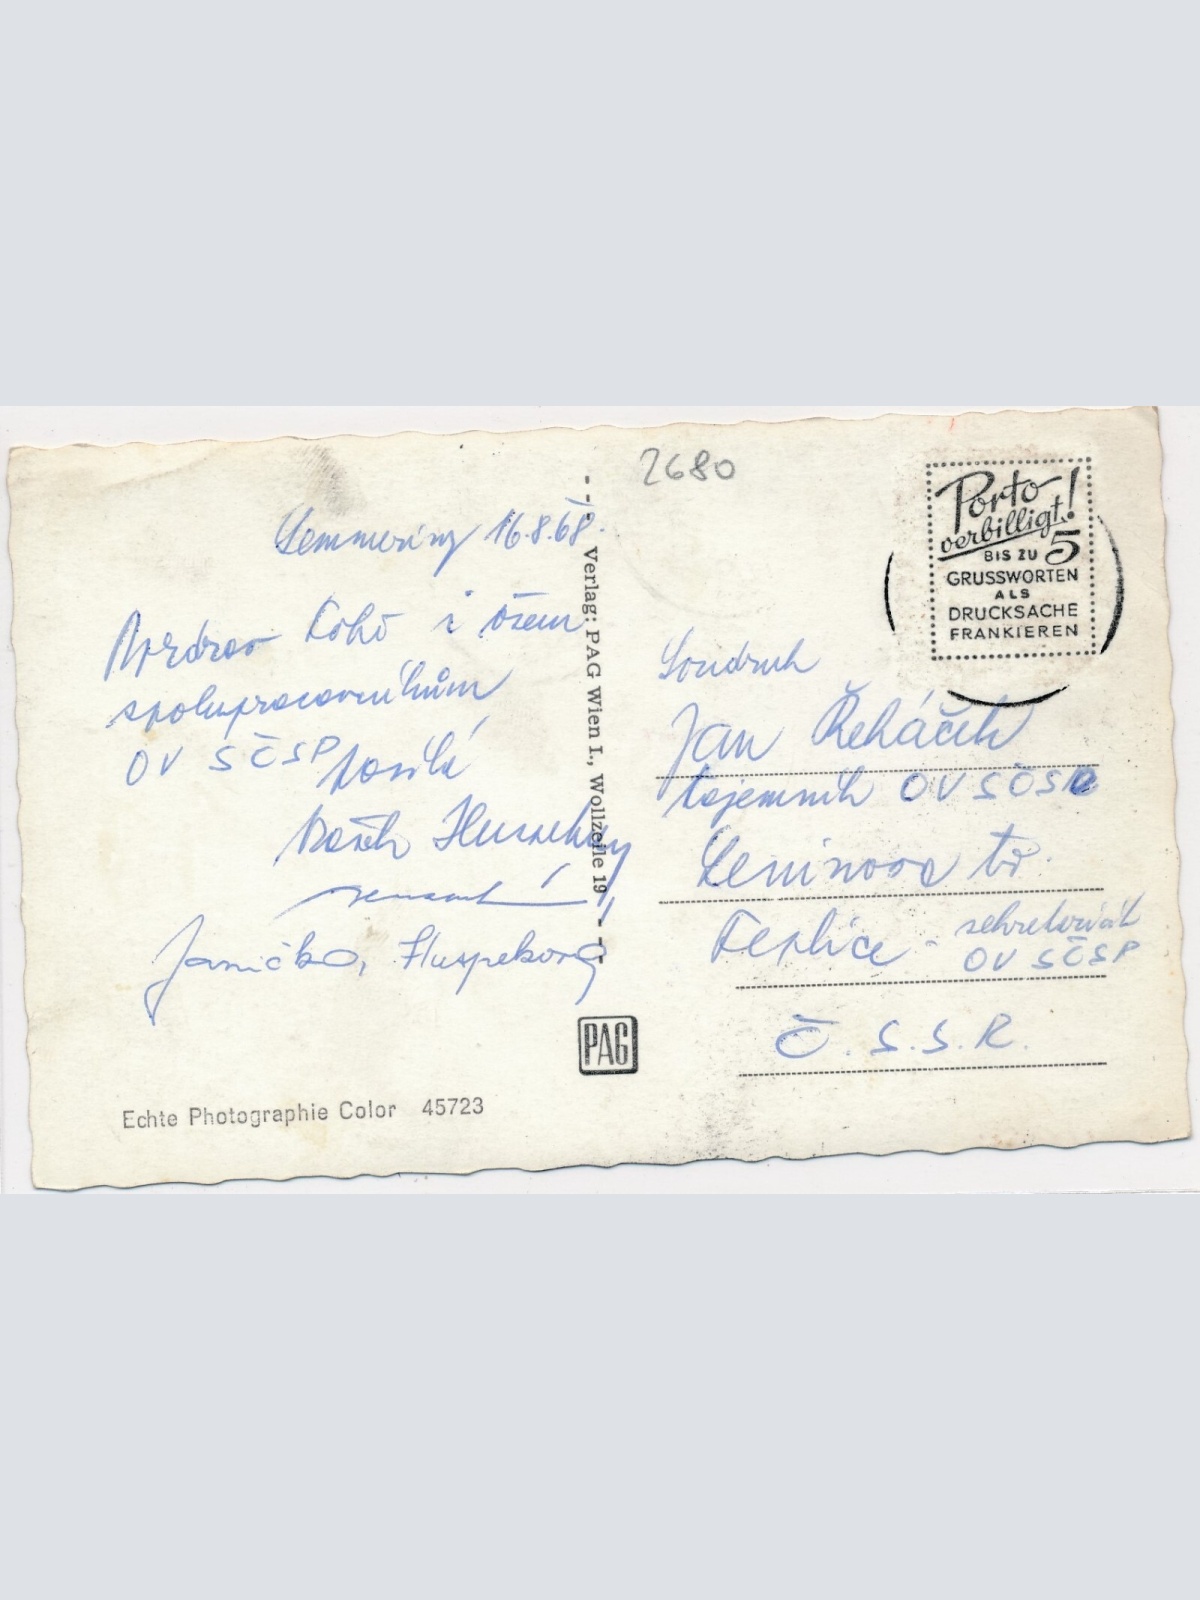 2680
Porto
verbilligt!
BIS ZU 5
GRUSSWORTEN
ALS
DRUCKSACHE
FRANKIEREN
Semmering 16.8.68.
Pozdrav Tobě i všem
spolupracovníkům
OV SČSP posílá
Janička,
Verlag: PAG Wien I., Wollzeile 19
PAG
Echte Photographie Color 45723
Soudruh
Jan Řeháček
tajemník OV SČSP
Leninova tř.
Teplice - sekretariát
OV SČSP
Č.S.S.R.